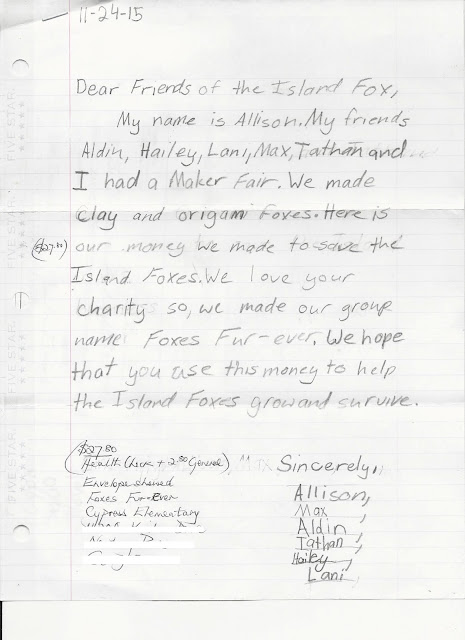 11-24-15
Dear Friends of the Island Fox,
My name is Allison. My friends
Aldin, Hailey, Lani, Max, Tathan and
I had a Maker Fair. We made
clay and origami Foxes. Here is
($27.80) our money we made to save the
Island Foxes. We love your
charity so, we made our group
name Foxes Fur-ever. We hope
that you use this money to help
the Island Foxes grow and survive.
$27.80
Health Check + 2.80 General
Envelope showed
Foxes Fur-Ever
Cypress Elementary
Sincerely,
Allison,
Max,
Aldin,
Tathan,
Hailey,
Lani
FIVE STAR
FIVE STAR
FIVE STAR
FIVE STAR